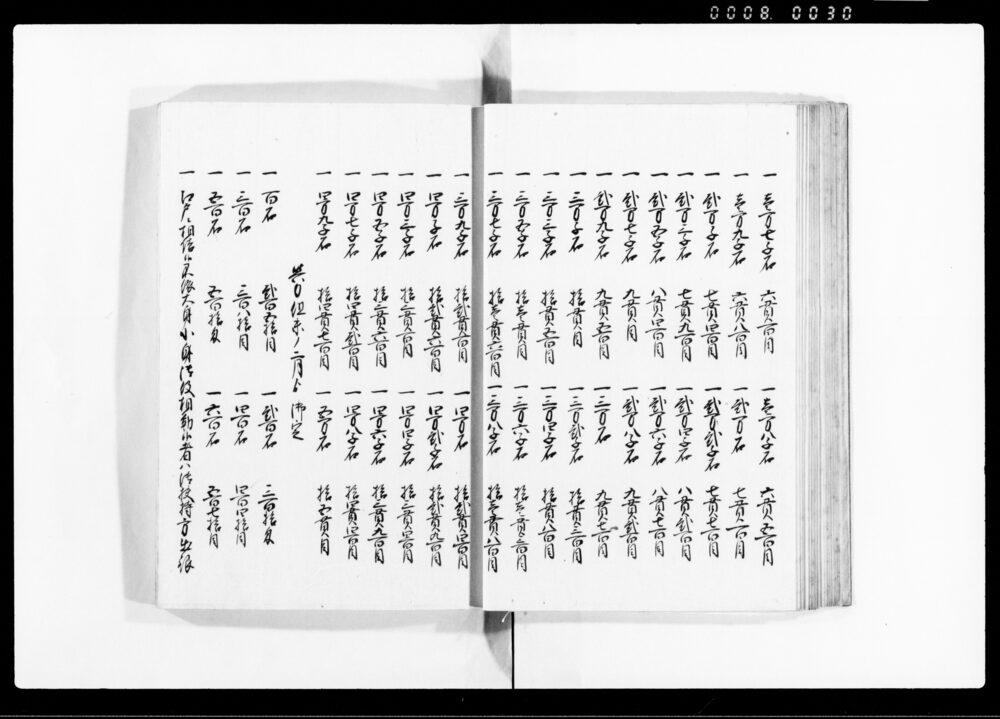 0008. 0030
一 壱万七千石 六貫弐百目 一 壱万八千石 六貫五百目
一 壱万九千石 六貫八百目 一 弐万石 七貫百目
一 弐万千石 七貫四百目 一 弐万弐千石 七貫七百目
一 弐万三千石 七貫九百目 一 弐万四千石 八貫弐百目
一 弐万五千石 八貫四百目 一 弐万六千石 八貫七百目
一 弐万七千石 九貫目 一 弐万八千石 九貫弐百目
一 弐万九千石 九貫五百目 一 三万石 九貫七百目
一 三万千石 拾貫目 一 三万弐千石 拾貫三百目
一 三万三千石 拾貫五百目 一 三万四千石 拾貫八百目
一 三万五千石 拾壱貫目 一 三万六千石 拾壱貫三百目
一 三万七千石 拾壱貫六百目 一 三万八千石 拾壱貫八百目
一 三万九千石 拾弐貫百目 一 四万石 拾弐貫四百目
一 四万千石 拾弐貫六百目 一 四万弐千石 拾弐貫九百目
一 四万三千石 拾三貫百目 一 四万四千石 拾三貫四百目
一 四万五千石 拾三貫六百目 一 四万六千石 拾三貫九百目
一 四万七千石 拾四貫弐百目 一 四万八千石 拾四貫四百目
一 四万九千石 拾四貫七百目 一 五万石 拾五貫目
未ノ二月ゟ御定
一 百石 弐百五拾目 一 弐百石 三百拾匁
一 三百石 三百八拾目 一 四百石 四百四拾目
一 五百石 五百拾匁 一 六百石 五百七拾目
一 江戸ニ相詰候 大身小身御役相勤候者ハ御扶持方出銀